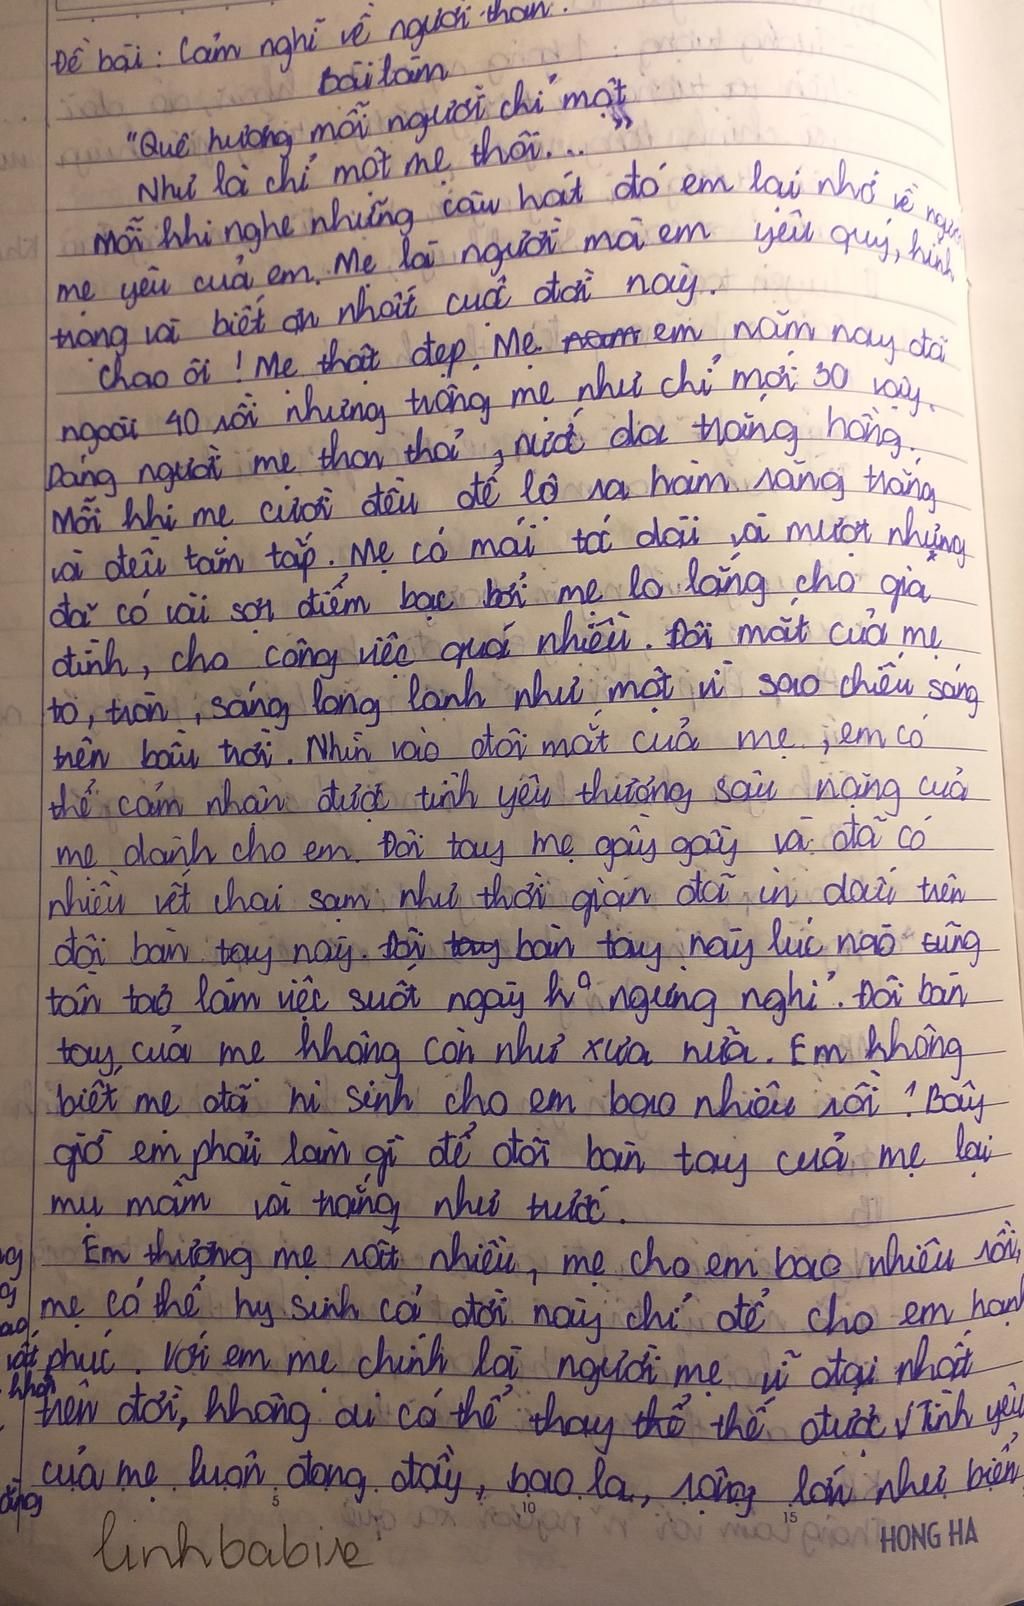 Đề bài: Cảm nghĩ về người thân.
Bài làm
"Quê hương mỗi người chỉ một
Như là chỉ một mẹ thôi..."
Mỗi khi nghe những câu hát đó em lại nhớ về người
mẹ yêu của em. Mẹ là người mà em yêu quý, kính
trọng và biết ơn nhất cuộc đời này.
Chao ôi! Mẹ thật đẹp. Mẹ em năm nay đã
ngoài 40 rồi nhưng trông mẹ như chỉ mới 30 vậy.
Dáng người mẹ thon thả, nước da trắng hồng.
Mỗi khi mẹ cười đều để lộ ra hàm răng trắng
và đều tăm tắp. Mẹ có mái tóc dài và mượt nhưng
đã có vài sợi điểm bạc bởi mẹ lo lắng cho gia
đình, cho công việc quá nhiều. Đôi mắt của mẹ
to, tròn, sáng long lanh như một vì sao chiếu sáng
trên bầu trời. Nhìn vào đôi mắt của mẹ, em có
thể cảm nhận được tình yêu thương sâu nặng của
mẹ dành cho em. Đôi tay mẹ gầy gầy và đã có
nhiều vết chai sạm như thời gian đã in dấu trên
đôi bàn tay này. Đôi bàn tay này lúc nào cũng
tần tảo làm việc suốt ngày ko ngưng nghỉ. Đôi bàn
tay của mẹ không còn như xưa nữa. Em không
biết mẹ đã hi sinh cho em bao nhiêu rồi? Bây
giờ em phải làm gì để đôi bàn tay của mẹ lại
mụ mẫm và trắng như trước.
Em thương mẹ rất nhiều, mẹ cho em bao nhiêu rồi,
mẹ có thể hy sinh cả đời này chỉ để cho em hạnh
phúc. Với em mẹ chính là người mẹ vĩ đại nhất
trên đời, không ai có thể thay thế được. Tình yêu
của mẹ luôn đong đầy, bao la, rộng lớn như biển
5 10 15
linhbabie
HONG HA